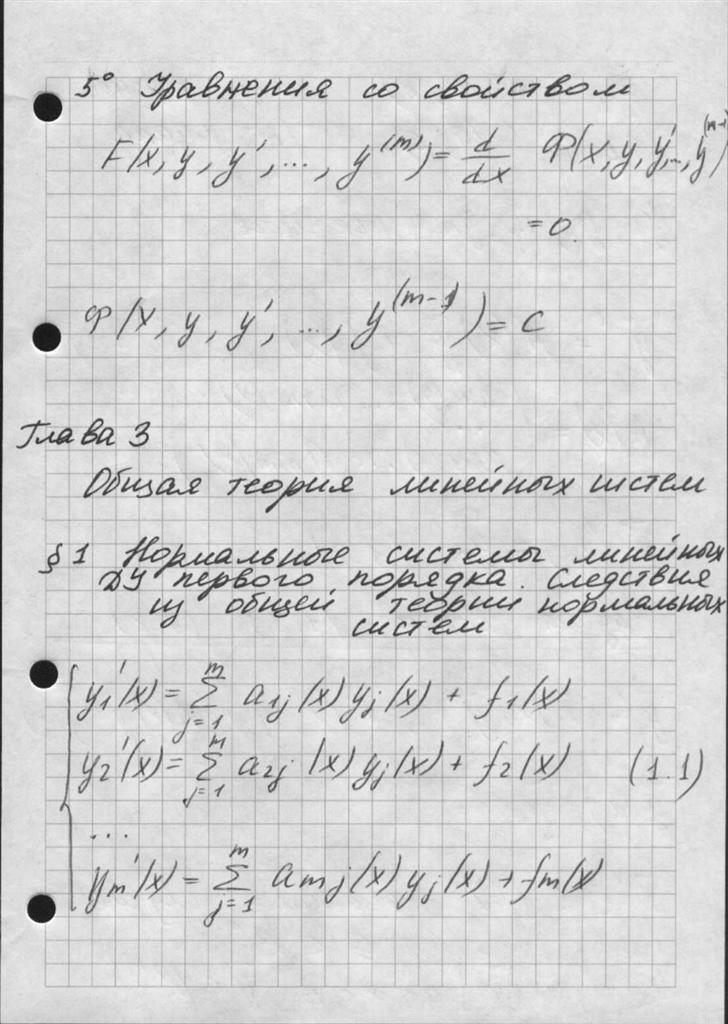 5° Уравнения со свойством
F(x, y, y', ..., y^(m)) = d/dx Ф(x, y, y', ..., y^(m-1))
= 0.
Ф(x, y, y', ..., y^(m-1)) = C
Глава 3
Общая теория линейных систем
§1 Нормальные системы линейных
ДУ первого порядка. Следствия
из общей теории нормальных
систем
y₁'(x) = ∑_{j=1}^{m} a₁ⱼ(x) yⱼ(x) + f₁(x)
y₂'(x) = ∑_{j=1}^{m} a₂ⱼ(x) yⱼ(x) + f₂(x) (1.1)
...
yₘ'(x) = ∑_{j=1}^{m} aₘⱼ(x) yⱼ(x) + fₘ(x)